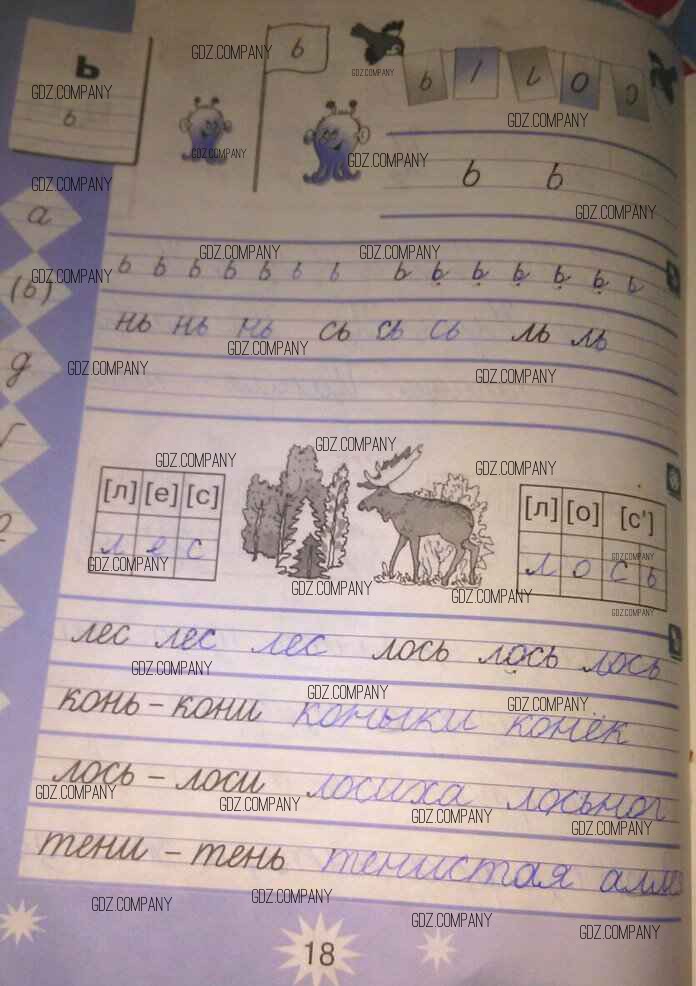 ь
ь
ь
ь ь
а
ь ь ь ь ь ь ь ь ь ь ь ь ь ь
(ь)
нь нь нь сь сь сь ль ль
д
[л] [е] [с]
л е с
[л] [о] [с']
л о с ь
лес лес лес лось лось лось
конь – кони коньки конёк
лось – лоси лосиха
тени – тень тенистая
18
GDZ.COMPANY